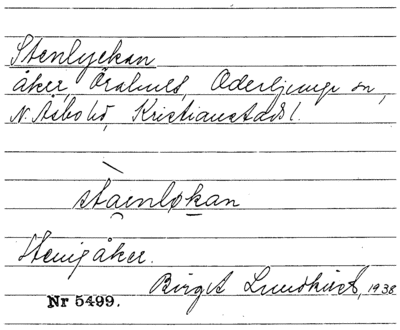 Stenlyckan
åker, Örahult, Oderljunga sn,
N. Åsbo hd, Kristianstads l.
stainløkan
Stenig åker.
Birgit Lundkvist, 1938
Nr 5499.